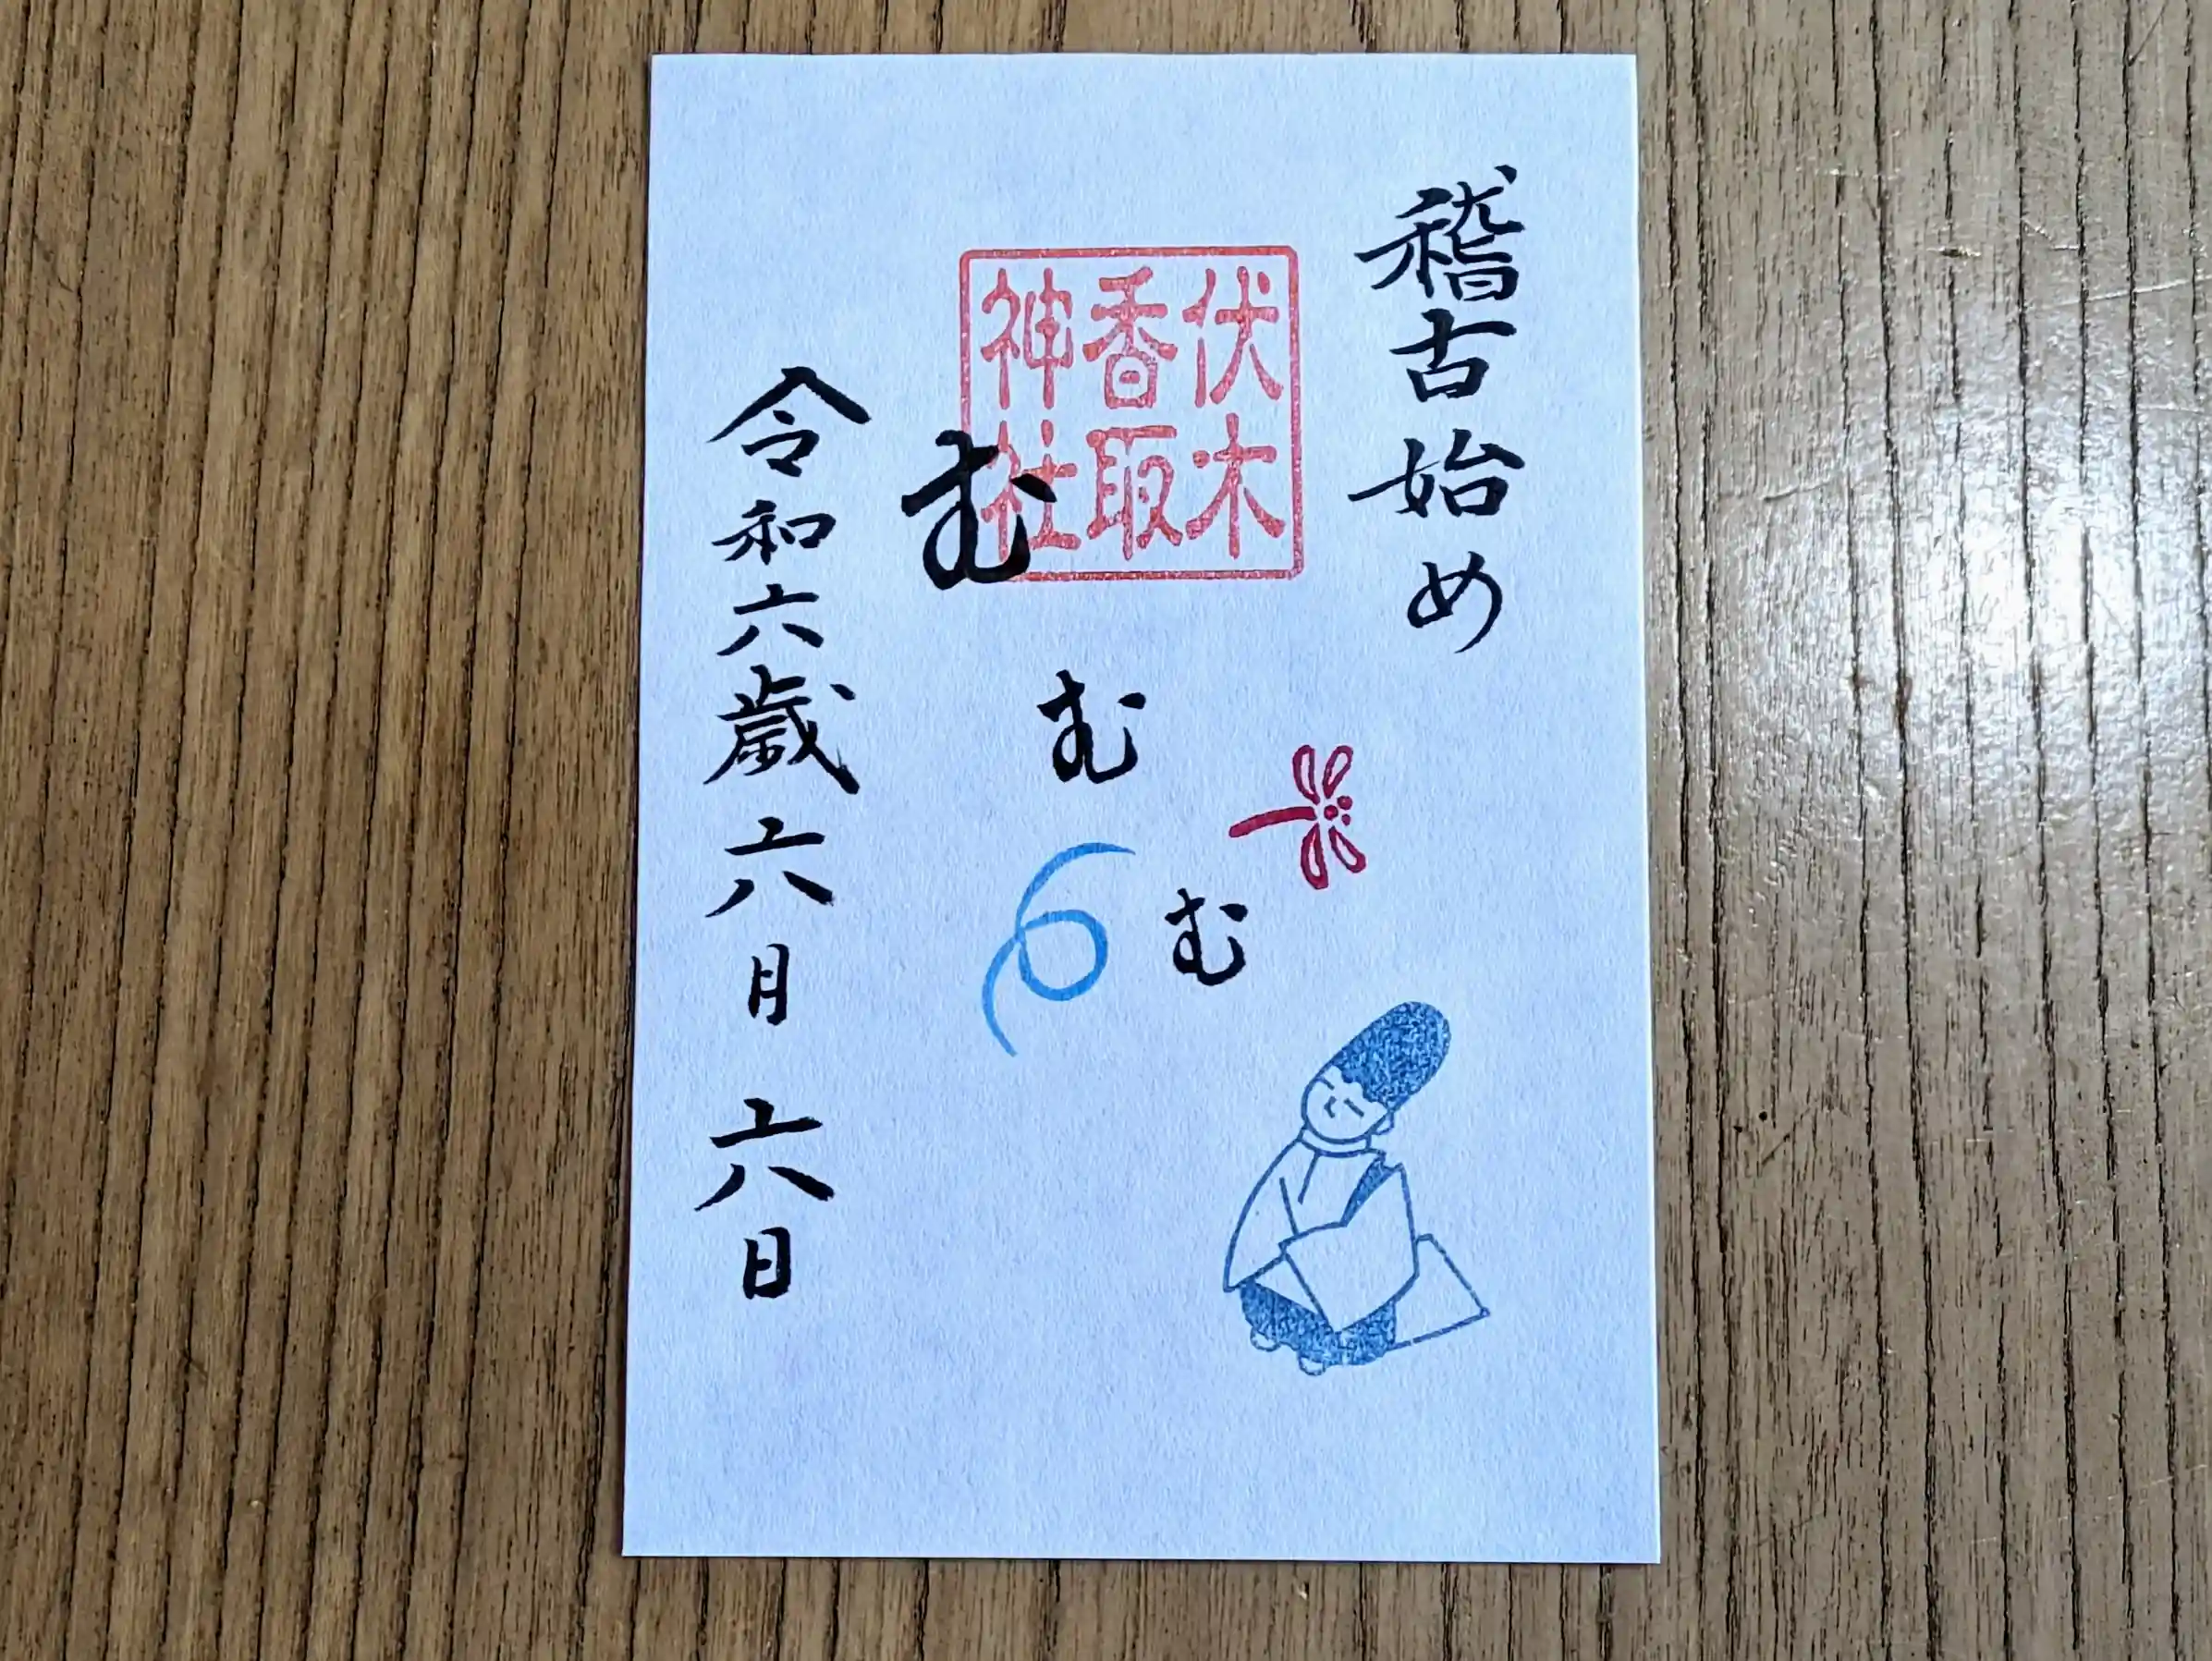 稽古始め
伏木
香取
神社
む
む
む
令和六歳六月六日